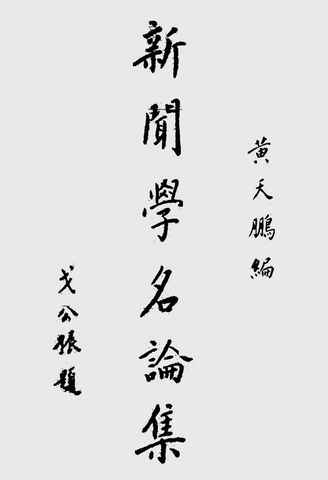 黃天鵬編
新聞學名論集
戈公振題